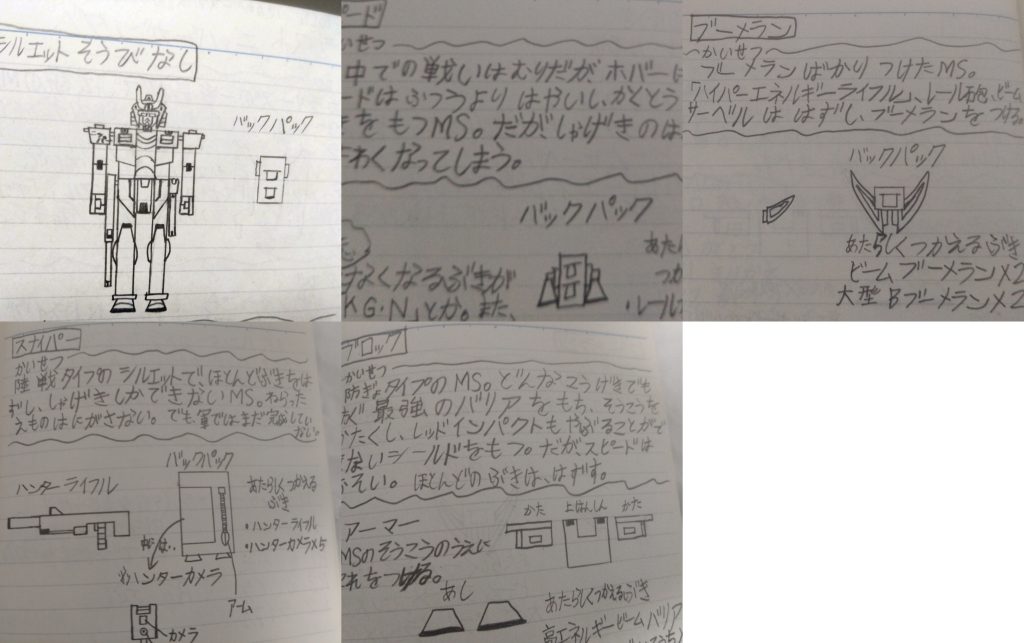 シルエット そうびなし
バックパック
ード
いせつ
中での戦いはむりだが ホバーに
ードは ふつうより はやいし、かくとう
をもつMS。だがしゃげきのは
わくなってしまう。
バックパック
あたら
つか
・レール
なくなるぶきが
KG・N」とか。また、
ブーメラン
かいせつ
ブーメランばかり つけたMS。
「ハイパーエネルギーライフル」、レール砲、ビーム
サーベルは はずし、ブーメランを つける。
バックパック
あたらしくつかえるぶき
ビームブーメラン×2
大型Bブーメラン×2
スナイパー
かいせつ
陸戦タイプの シルエットで、ほとんどぶきをは
ずし、しゃげきしかできないMS。ねらった
えものは にがさない。でも、軍ではまだ完成してい
ない。
バックパック
ハンターライフル
あたらしくつかえる
ぶき
・ハンターライフル
・ハンターカメラ×5
ハンターカメラ
アーム
カメラ
ブロック
かいせつ
防ぎょタイプのMS。どんなこうげきでも
最強のバリアをもち、そうこうを
かたくし、レッドインパクトもやぶることがで
きないシールドをもつ。だが、スピードは
おそい。ほとんどのぶきは、はずす。
アーマー
かた 上はんしん かた
MSのそうこうのうえに
これをつける。
あし
あたらしくつかえるぶき
高エネルギービームバリア